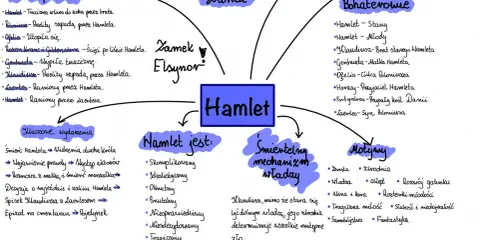 Bohaterowie
Hamlet - Trucizna wlana do ucha przez brata.
Poloniusz - Pchły szpadą, przez Hamleta.
Ofelia - Utopiła się.
Rosencrantz i Guildenstern - Ścięci po liście Hamleta.
Gertruda - Wypiła truciznę.
Klaudiusz - szpadą, przez Hamleta.
Laertes - Raniony przez Hamleta.
Hamlet - Raniony przez Laertesa.
Zamek
Elsynor!
Hamlet - Stary
Hamlet - Młody
Klaudiusz - Brat starego Hamleta
Gertruda - Matka Hamleta
Ofelia - Córka Poloniusza
Horacy - Przyjaciel Hamleta
Fortynbras - Danii
Laertes - Syn Poloniusza
Hamlet
Kluczowe wydarzenia
Śmierć Hamleta → Widzenia ducha króla
→ Wyjawienie prawdy → Występ aktorów
→ Rozmowa z matką, i śmierć
Decyzja o wyjeździe i zabiciu Hamleta →
Spisek Klaudiusza z Laertesem →
na cmentarzu → Pojedynek
Hamlet jest:
• Skomplikowany
• Idealistyczny
• Okrutny
• Brutalny
• Niesprawiedliwy
• Niezdecydowany
• Tragiczny
Śmiertelny
mechanizm
władzy
Klaudiusz, mimo że stara się
być dobrym władcą, jego zbrodnia
determinuje wszelkie następne
zło.
Motywy
• Zemsta • Zbrodnia
• Władza • Obłęd • Rozwój gatunku
• Wina i kara • Rozterki moralne
• Tragiczna miłość • Szaleństwo i niedojrzałość
• Samobójstwo • Fantastyka